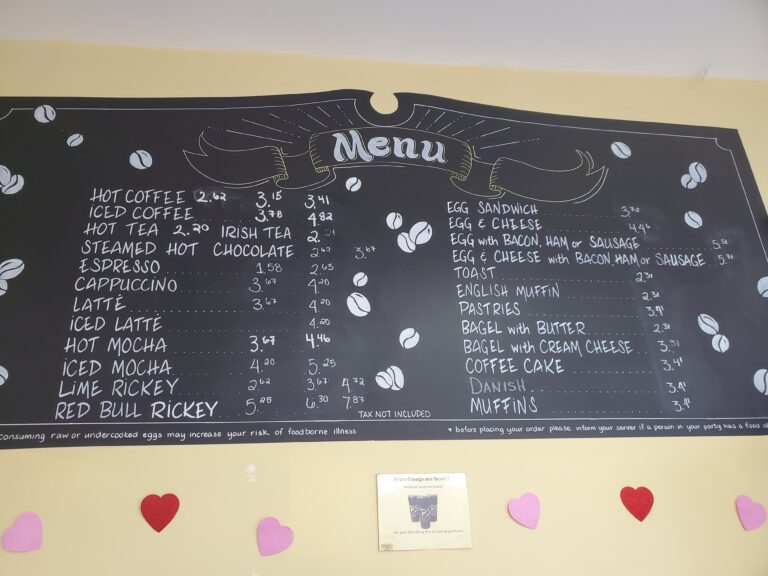 Menu
HOT COFFEE 2.62 3.15 3.41
ICED COFFEE 3.78 4.82
HOT TEA 2.20 IRISH TEA 2.
STEAMED HOT CHOCOLATE 2.62 3.67
ESPRESSO 1.58 2.63
CAPPUCCINO 3.67 4.20
LATTÉ 3.67 4.20
ICED LATTÉ 4.20
HOT MOCHA 3.67 4.46
ICED MOCHA 4.20 5.25
LIME RICKEY 2.62 3.67 4.72
RED BULL RICKEY 5.25 6.30 7.87
TAX NOT INCLUDED
EGG SANDWICH 3.72
EGG & CHEESE 4.46
EGG with BACON, HAM or SAUSAGE
EGG & CHEESE with BACON, HAM or SAUSAGE
TOAST 2.31
ENGLISH MUFFIN 2.31
PASTRIES 3.41
BAGEL with BUTTER 2.31
BAGEL with CREAM CHEESE 3.31
COFFEE CAKE 3.41
DANISH 3.41
MUFFINS 3.41
consuming raw or undercooked eggs may increase your risk of foodborne illness
* before placing your order please inform your server if a person in your party has a food
Travel mugs are here!!